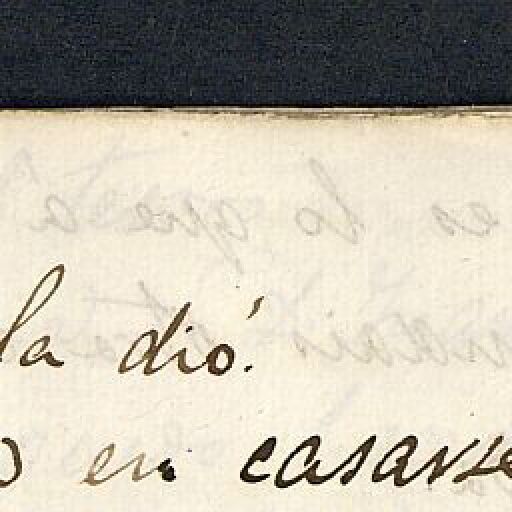 la dió.
en casarse